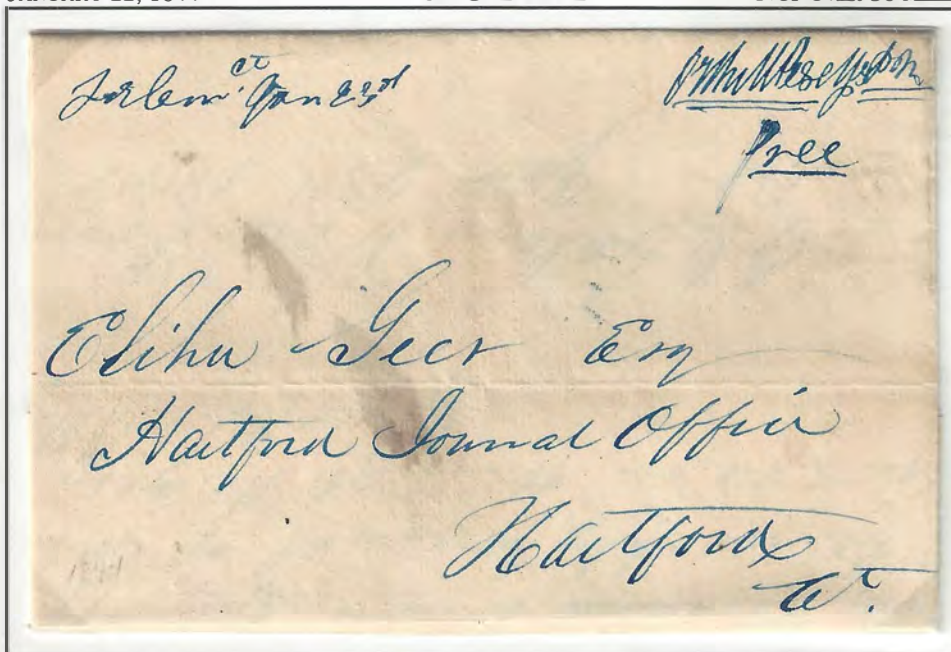 Salem Ct Jan 23d
Free
Elihu Geer Esq
Hartford Journal Office
Hartford
Ct.
1844